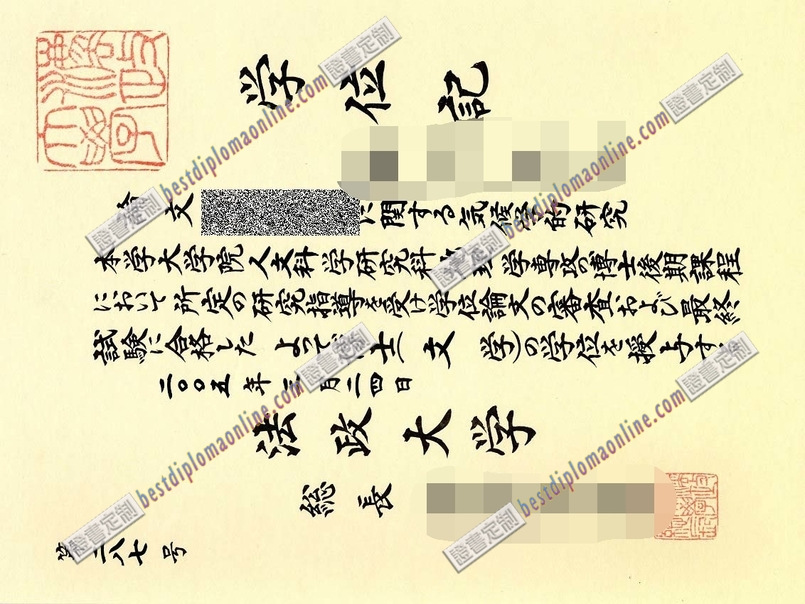 学位記
文
に関する気候学的研究
本学大学院人文科学研究科 学専攻の博士後期課程
において所定の研究指導を受け学位論文の審査および最終
試験に合格した よって 士(文 学)の学位を授与する
二〇〇五年三月二四日
法政大学
総長
八七号
bestdiplomaonline.com 證書定制
bestdiplomaonline.com 證書定制
bestdiplomaonline.com 證書定制
bestdiplomaonline.com 證書定制